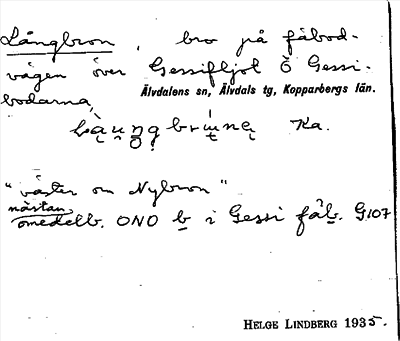 Långbron, bro på fäbod-
vägen över Gessifljot Ö Gessi-
bodarna,
Älvdalens sn, Älvdals tg, Kopparbergs län.
Ka.
"väster om Nybron"
nästan
omedelb. ONO b i Gessi fäb. G107
HELGE LINDBERG 1935.